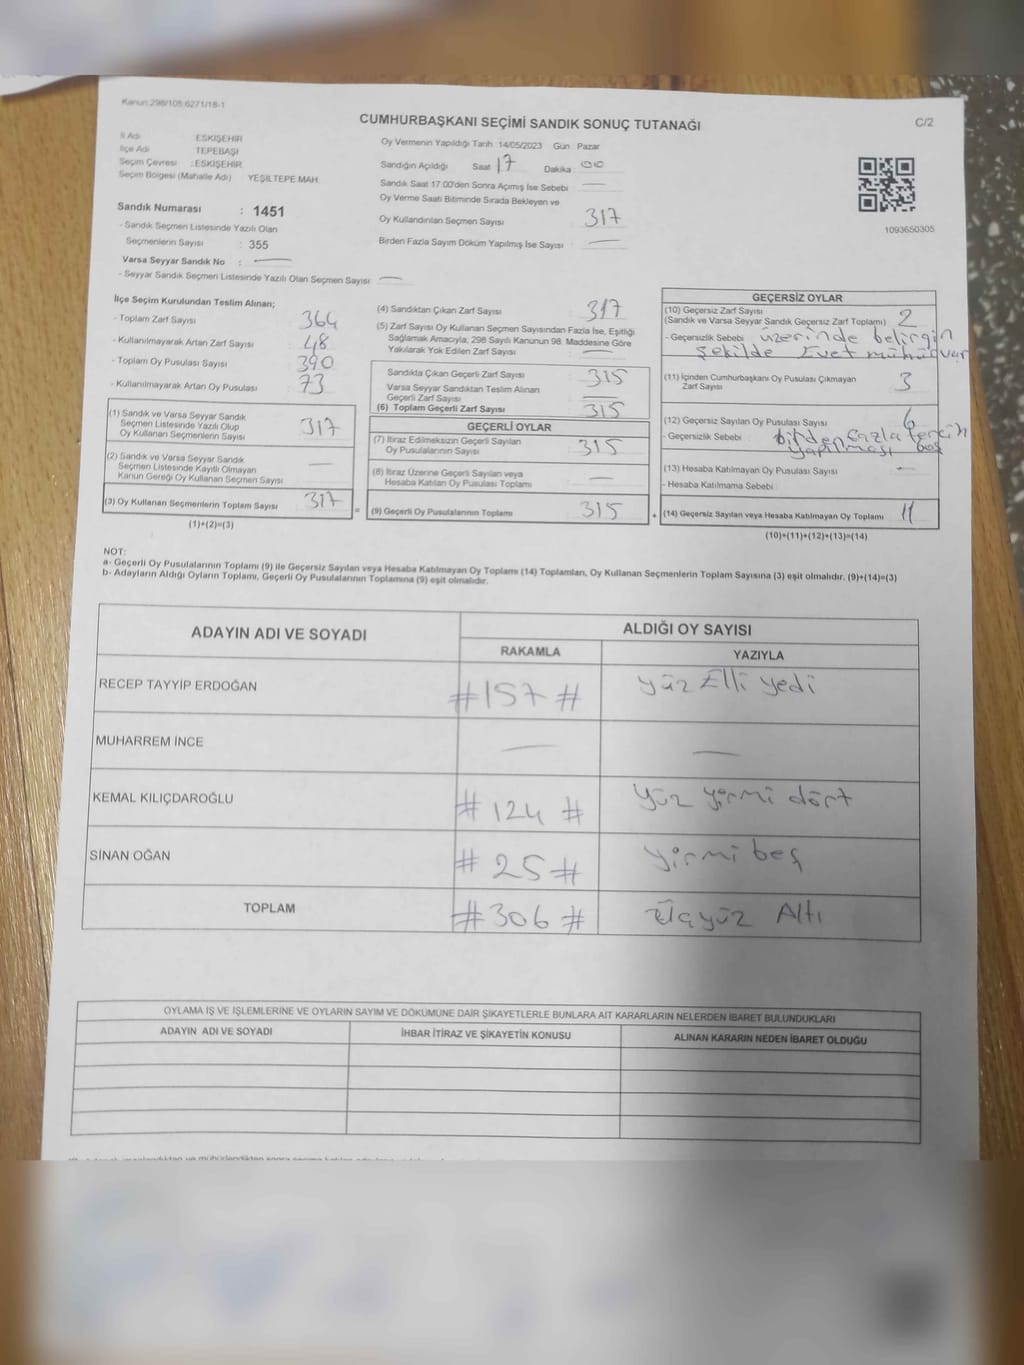 Kanun:298/105;6271/18-1
C/2
CUMHURBAŞKANI SEÇİMİ SANDIK SONUÇ TUTANAĞI
İl Adı ESKİŞEHİR
İlçe Adı TEPEBAŞI
Seçim Çevresi : ESKİŞEHİR
Seçim Bölgesi (Mahalle Adı) YEŞİLTEPE MAH.
Sandık Numarası : 1451
- Sandık Seçmen Listesinde Yazılı Olan
Seçmenlerin Sayısı : 355
Varsa Seyyar Sandık No : —
- Seyyar Sandık Seçmen Listesinde Yazılı Olan Seçmen Sayısı —
Oy Vermenin Yapıldığı Tarih 14/05/2023 Gün Pazar
Sandığın Açıldığı Saat 17 Dakika 00
Sandık Saat 17:00'den Sonra Açımış İse Sebebi —
Oy Verme Saati Bitiminde Sırada Bekleyen ve
Oy Kullandırılan Seçmen Sayısı 317
Birden Fazla Sayım Döküm Yapılmış İse Sayısı —
1093650305
İlçe Seçim Kurulundan Teslim Alınan;
- Toplam Zarf Sayısı 364
- Kullanılmayarak Artan Zarf Sayısı 48
- Toplam Oy Pusulası Sayısı 390
- Kullanılmayarak Artan Oy Pusulası 73
(1) Sandık ve Varsa Seyyar Sandık
Seçmen Listesinde Yazılı Olup
Oy Kullanan Seçmenlerin Sayısı 317
(2) Sandık ve Varsa Seyyar Sandık
Seçmen Listesinde Kayıtlı Olmayan
Kanun Gereği Oy Kullanan Seçmen Sayısı —
(3) Oy Kullanan Seçmenlerin Toplam Sayısı 317
(1)+(2)=(3)
(4) Sandıktan Çıkan Zarf Sayısı 317
(5) Zarf Sayısı Oy Kullanan Seçmen Sayısından Fazla İse, Eşitliği
Sağlamak Amacıyla, 298 Sayılı Kanunun 98. Maddesine Göre
Yakılarak Yok Edilen Zarf Sayısı —
Sandıkta Çıkan Geçerli Zarf Sayısı 315
Varsa Seyyar Sandıktan Teslim Alınan
Geçerli Zarf Sayısı —
(6) Toplam Geçerli Zarf Sayısı 315
GEÇERLİ OYLAR
(7) İtiraz Edilmeksizin Geçerli Sayılan
Oy Pusulalarının Sayısı 315
(8) İtiraz Üzerine Geçerli Sayılan veya
Hesaba Katılan Oy Pusulası Toplamı —
= (9) Geçerli Oy Pusulalarının Toplamı 315 +
GEÇERSİZ OYLAR
(10) Geçersiz Zarf Sayısı
(Sandık ve Varsa Seyyar Sandık Geçersiz Zarf Toplamı) 2
- Geçersizlik Sebebi üzerinde belirgin
şekilde Evet mührü var
(11) İçinden Cumhurbaşkanı Oy Pusulası Çıkmayan
Zarf Sayısı 3
(12) Geçersiz Sayılan Oy Pusulası Sayısı 6
- Geçersizlik Sebebi : birden fazla tercih
yapılması boş
(13) Hesaba Katılmayan Oy Pusulası Sayısı —
- Hesaba Katılmama Sebebi
(14) Geçersiz Sayılan veya Hesaba Katılmayan Oy Toplamı 11
(10)+(11)+(12)+(13)=(14)
NOT:
a- Geçerli Oy Pusulalarının Toplamı (9) ile Geçersiz Sayılan veya Hesaba Katılmayan Oy Toplamı (14) Toplamları, Oy Kullanan Seçmenlerin Toplam Sayısına (3) eşit olmalıdır. (9)+(14)=(3)
b- Adayların Aldığı Oyların Toplamı, Geçerli Oy Pusulalarının Toplamına (9) eşit olmalıdır.
ADAYIN ADI VE SOYADI ALDIĞI OY SAYISI
RAKAMLA YAZIYLA
RECEP TAYYİP ERDOĞAN #157# Yüz Elli yedi
MUHARREM İNCE — —
KEMAL KILIÇDAROĞLU #124# Yüz yirmi dört
SİNAN OĞAN #25# yirmi beş
TOPLAM #306# Üçyüz Altı
OYLAMA İŞ VE İŞLEMLERİNE VE OYLARIN SAYIM VE DÖKÜMÜNE DAİR ŞİKAYETLERLE BUNLARA AİT KARARLARIN NELERDEN İBARET BULUNDUKLARI
ADAYIN ADI VE SOYADI İHBAR İTİRAZ VE ŞİKAYETİN KONUSU ALINAN KARARIN NEDEN İBARET OLDUĞU